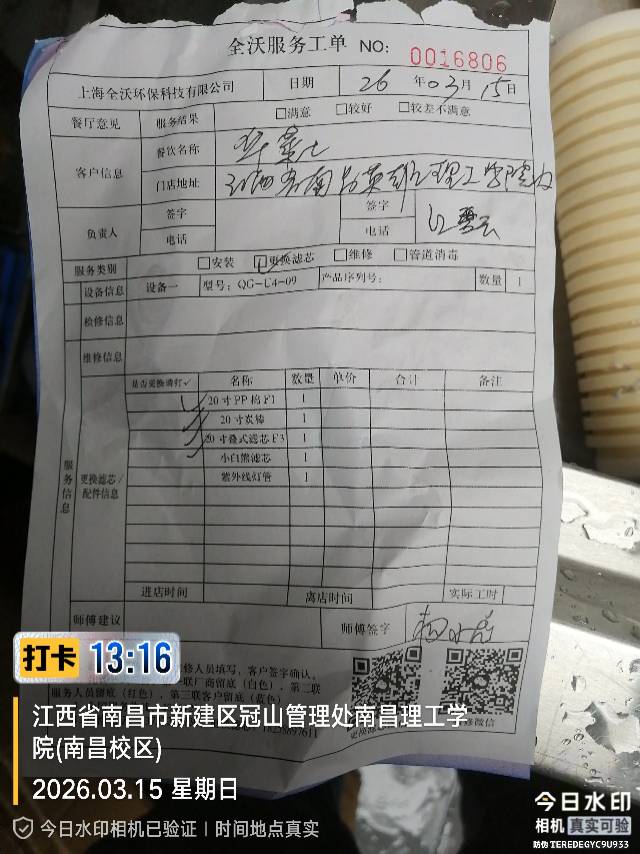 全沃服务工单 NO: 0016806
上海全沃环保科技有限公司 日期 26 年 03 月 15 日
餐厅意见 服务结果 □满意 □较好 □较差不满意
客户信息 餐饮名称 华莱士
门店地址 江西省南昌 理工学院
负责人 签字 签字
电话 电话
服务类别 □安装 □更换滤芯 □维修 □管道消毒
设备信息 设备一 型号: QG-U4-09 产品序列号: 数量 1
检修信息
维修信息
服务信息 更换滤芯/配件信息
是否更换请打✓ 名称 数量 单价 合计 备注
20寸PP棉F1 1
20寸炭棒 1
20寸叠式滤芯F3 1
小白熊滤芯 1
紫外线灯管 1
进店时间 离店时间 实际工时
师傅建议 师傅签字
修人员填写，客户签字确认。
联厂商留底（白色），第二联
服务人员留底（红色），第三联客户留底（蓝色）
打卡 13:16
江西省南昌市新建区冠山管理处南昌理工学
院(南昌校区)
2026.03.15 星期日
今日水印相机已验证 | 时间地点真实
今日水印
相机 真实可验
防伪 TEREDEGYC9U933